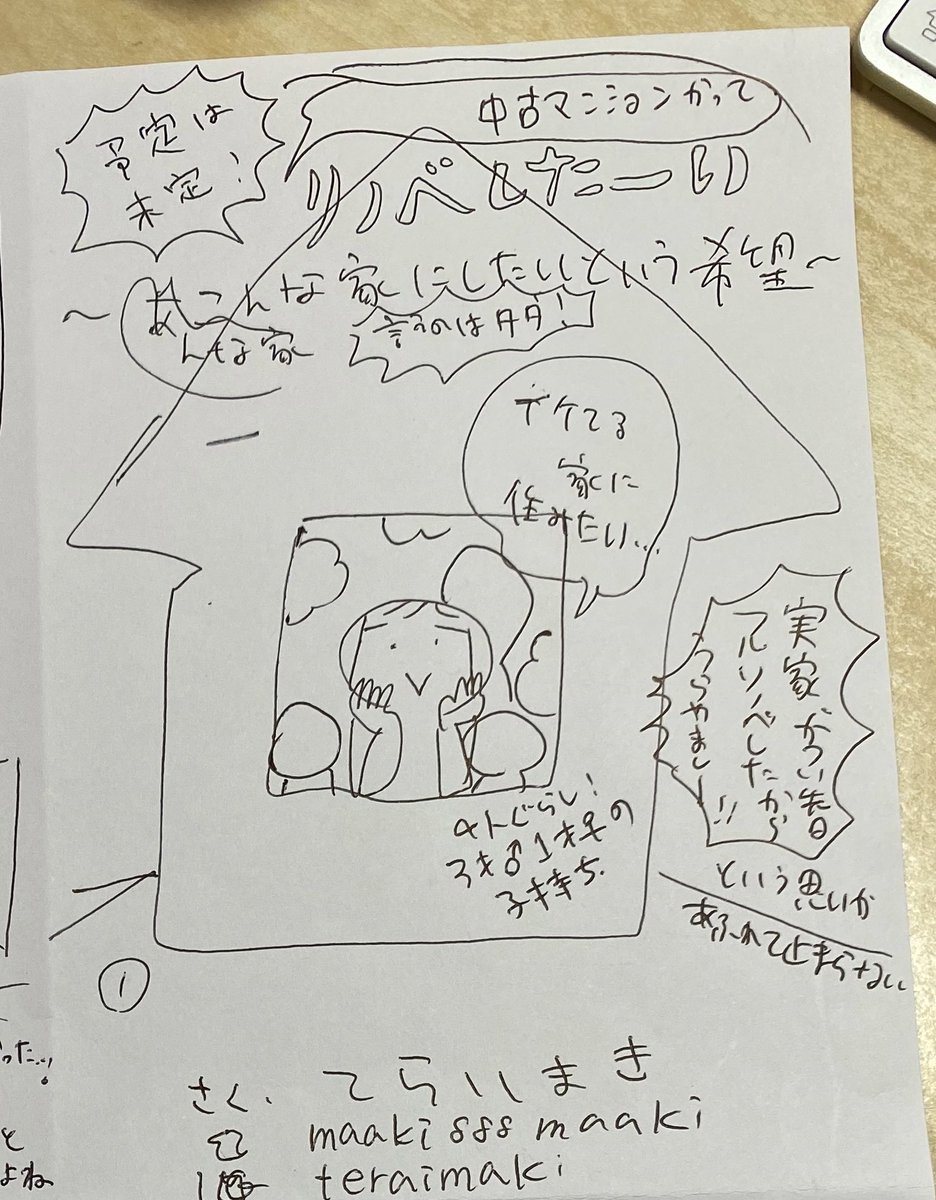 予定は
未定!
中古マンションかって
リノベしたーい
~こんな家にしたいという希望~
あんな家
言うのはタダ!
イケてる
家に
住みたい…
4人ぐらし!
3才♂1才♀の
子持ち.
実家がつい先日
フルリノベしたから
うらやましー!!
という思いが
あふれて止まらない
①
さく.てらいまき
maakisssmaaki
teraimaki
った…!
と
よね